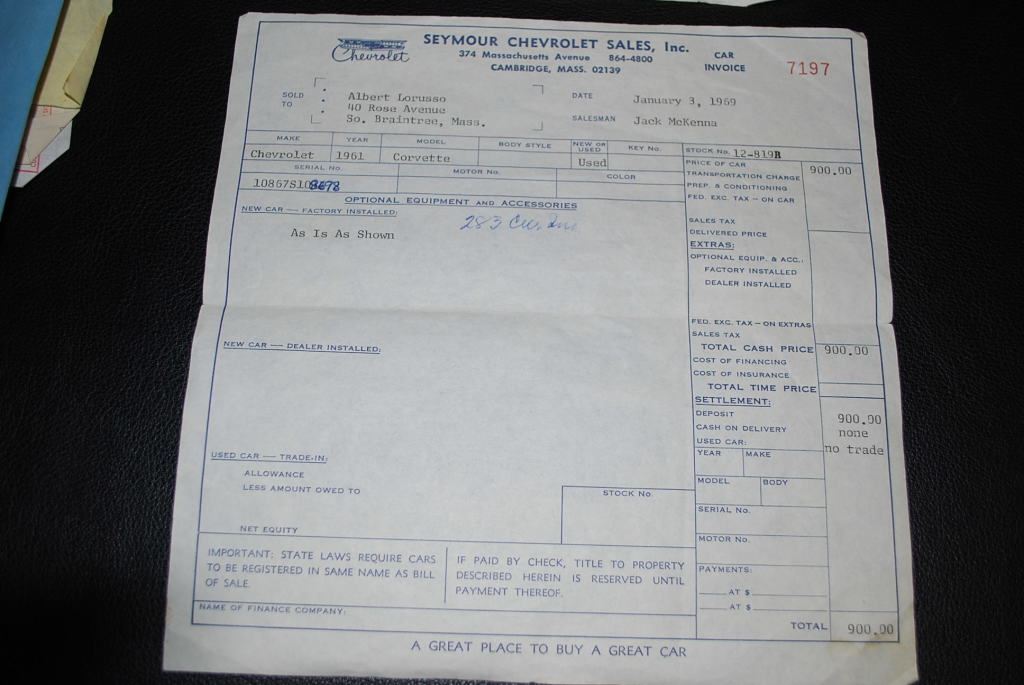 Chevrolet
SEYMOUR CHEVROLET SALES, Inc.
374 Massachusetts Avenue 864-4800
CAMBRIDGE, MASS. 02139
CAR INVOICE
7197
SOLD TO
Albert Lorusso
40 Rose Avenue
So. Braintree, Mass.
DATE January 3, 1969
SALESMAN Jack McKenna
MAKE YEAR MODEL BODY STYLE NEW OR USED KEY No. STOCK No. 12-819R
Chevrolet 1961 Corvette Used
SERIAL NO. MOTOR No. COLOR
10867S108678
OPTIONAL EQUIPMENT AND ACCESSORIES
NEW CAR — FACTORY INSTALLED:
283
As Is As Shown
PRICE OF CAR 900.00
TRANSPORTATION CHARGE
PREP. & CONDITIONING
FED. EXC. TAX — ON CAR
SALES TAX
DELIVERED PRICE
EXTRAS:
OPTIONAL EQUIP. & ACC.:
FACTORY INSTALLED
DEALER INSTALLED
FED. EXC. TAX — ON EXTRAS
SALES TAX
TOTAL CASH PRICE 900.00
COST OF FINANCING
COST OF INSURANCE
TOTAL TIME PRICE
SETTLEMENT:
DEPOSIT 900.00
CASH ON DELIVERY none
USED CAR: no trade
YEAR MAKE
MODEL BODY
SERIAL No.
MOTOR No.
PAYMENTS:
AT $
AT $
TOTAL 900.00
NEW CAR — DEALER INSTALLED:
USED CAR — TRADE-IN:
ALLOWANCE
LESS AMOUNT OWED TO
NET EQUITY
STOCK No.
IMPORTANT: STATE LAWS REQUIRE CARS
TO BE REGISTERED IN SAME NAME AS BILL
OF SALE.
IF PAID BY CHECK, TITLE TO PROPERTY
DESCRIBED HEREIN IS RESERVED UNTIL
PAYMENT THEREOF.
NAME OF FINANCE COMPANY:
A GREAT PLACE TO BUY A GREAT CAR